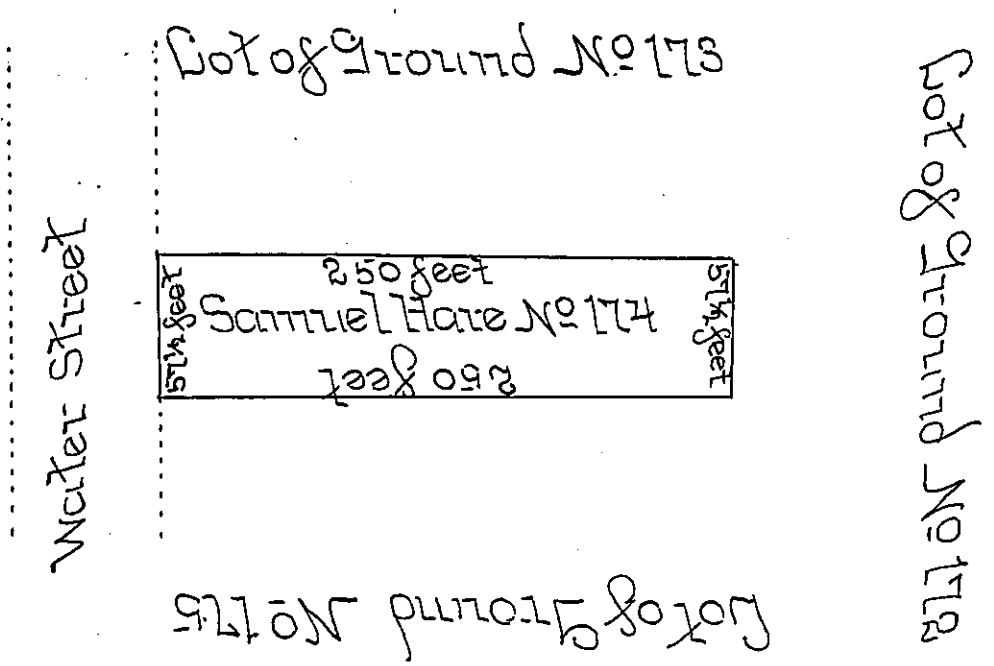 Lot of Ground Nº 173
Water Street
57½ feet
250 feet
57½ feet
Samuel Hare Nº 174
250 feet
Lot of Ground Nº 172
Lot of Ground Nº 175